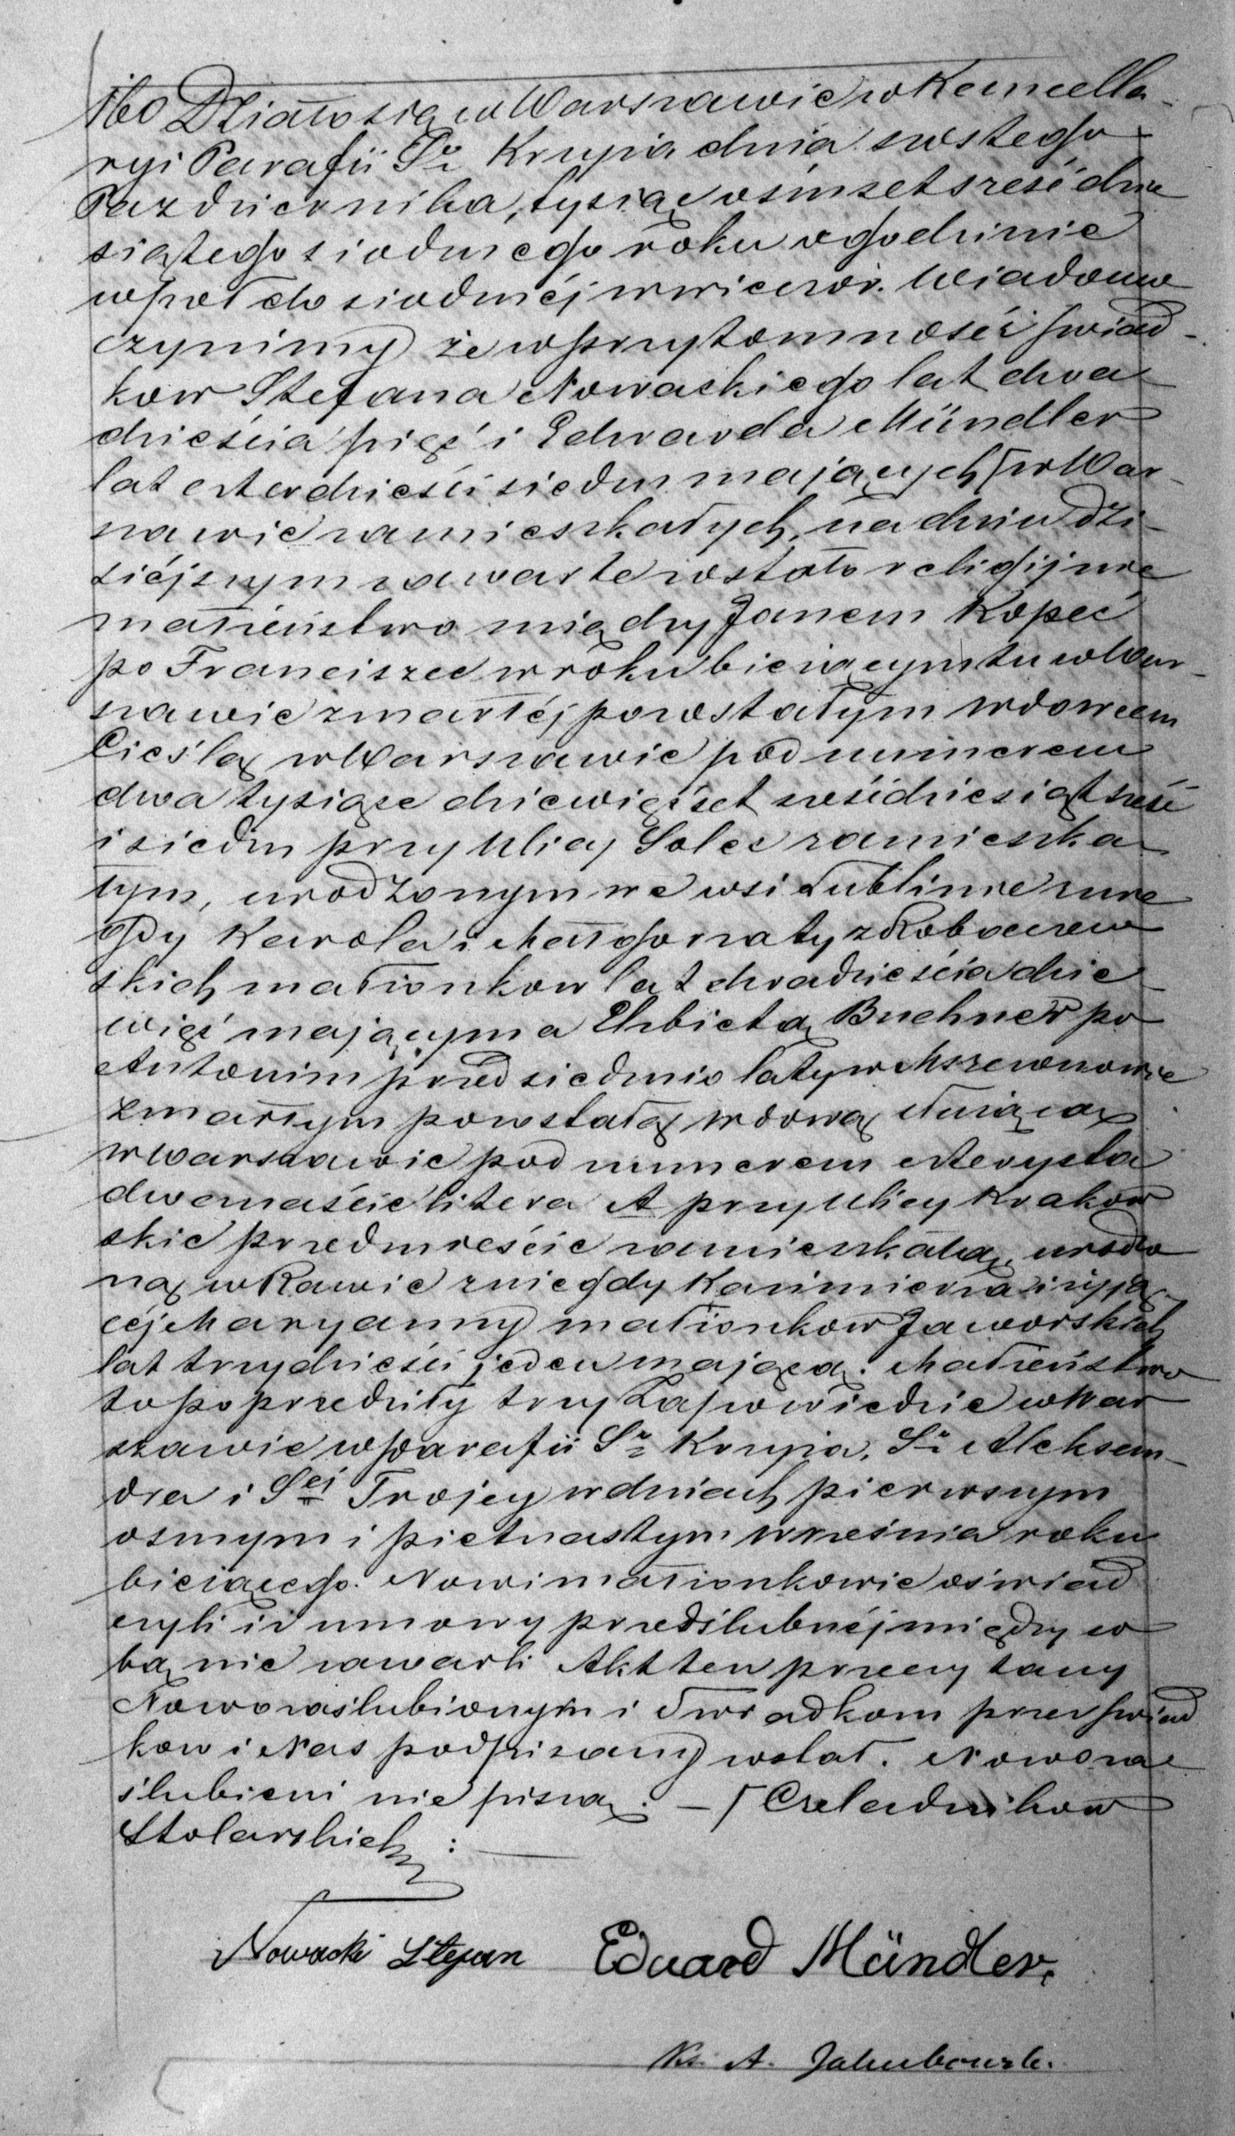 160 Działo się w Warszawie w Kancella-
ryi Parafii Sgo Krzyża dnia szóstego
Pazdziernika, tysiąc ośmset sześćdzie
siątego siódmego roku o godzinie
wpół do siódméj wwieczór. Wiadomo
czynimy że w przytomności świad-
kow Stefana Nowackiego lat dwa
dzieścia pięć i Edwarda Mündler
lat czterdzieści siedm mających ⌈ w War-
szawie zamieszkałych, na dniu dzi-
siéjszym zawarte zostało religijne
małżeństwo między Janem Kopeć
po Franciszce w roku bieżącym tu w War-
szawie zmarłéj pozostałym wdowcem
Cieślą w Warszawie pod numerem
dwa tysiące dziewięćset sześćdziesiąt sześć
i siedm przy Ulicy Solec zamieszka
łym, urodzonym we wsi Lublinie z nie
gdy Karola i Małgorzaty z
skich małżonkow lat dwadzieścia dzie
więć mającym a Elżbietą Buchner po
Antonim przed siedmio laty w Mszczonowie
zmarłym pozostałą wdową służącą
w Warszawie pod numerem czterysta
dwanaście litera A przy Ulicy Krakow
skie przedmieście zamieszkałą, urodzo
ną w Rawie z niegdy Kazimierza i żyją-
céj Maryanny małżonkow Jaworskich
lat trzydzieści jeden mającą. Małżeństwo
to poprzedziły trzy Zapowiedzie w War
szawie w Parafii Sgo Krzyża, Sgo Aleksan-
dra i Sej Trojcy w dniach pierwszym
osmym i pietnastym września roku
bieżącego. Nowi małżonkowie oświad
czyli iż umowy przedślubnéj między so
bą nie zawarli Akt ten przeczytany
Nowozaślubionym i Swiadkom przez świad
kow i Nas podpisany został. Nowoza
ślubieni nie piszą. — ⌈ Czeladnikow
Stolarskich :
Nowacki Stefan Eduard Mündler.
Ks. A. Jakubowski.